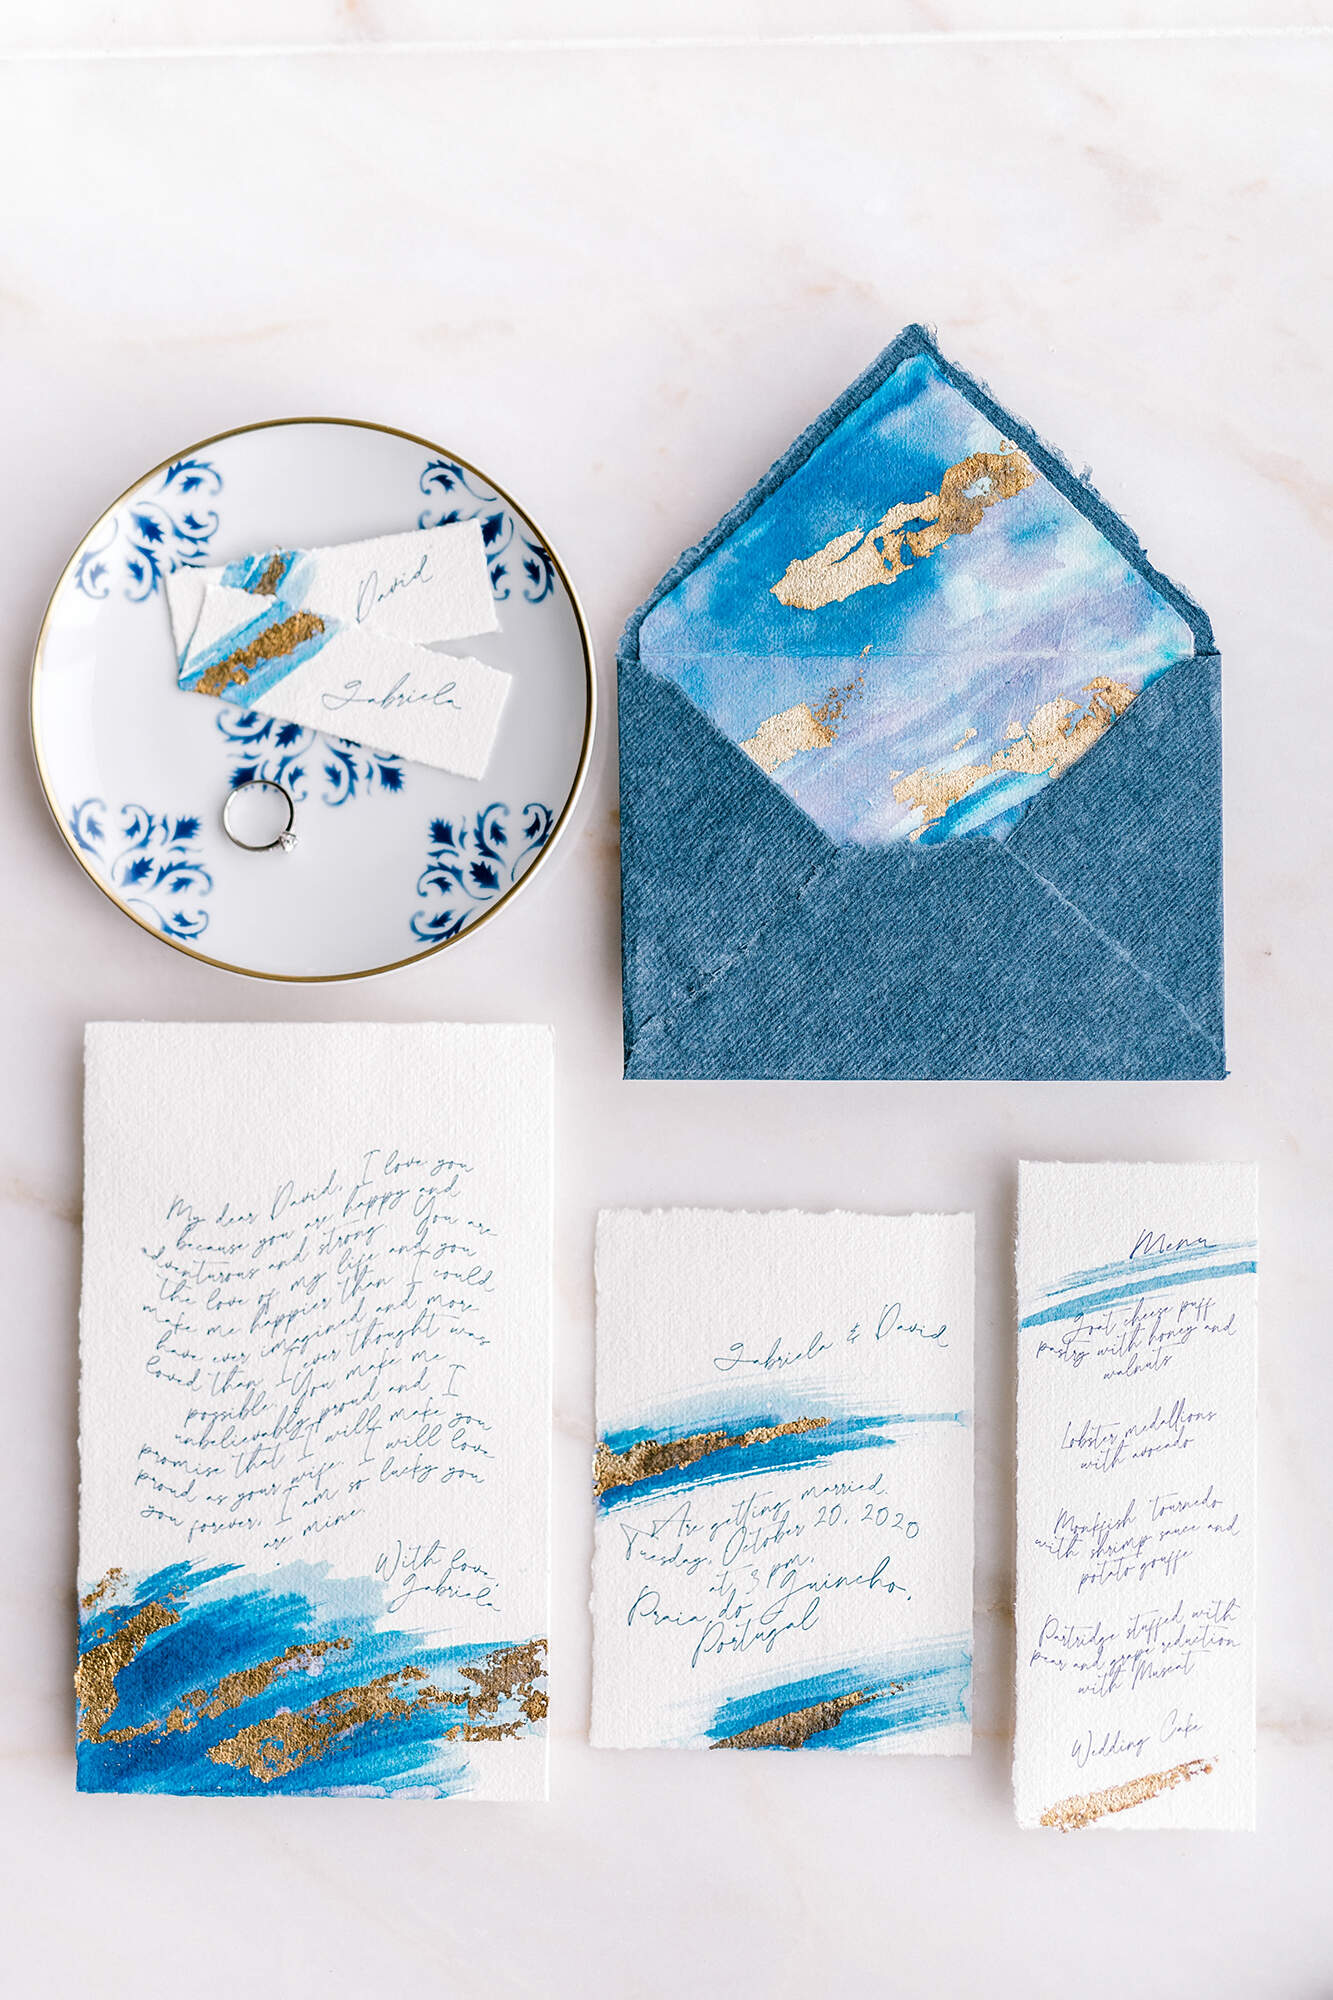 David
Gabriela
My dear David, I love you
because you are happy and
adventurous and strong. You are
the love of my life and you
make me happier than I could
have ever imagined and more
loved than I ever thought was
possible. You make me
unbelievably proud and I
promise that I will make you
proud as your wife. I will love
you forever, I am so lucky you
are mine.
With love,
Gabriela
Gabriela & David
Are getting married.
Tuesday, October 20, 2020
at 3 pm,
Praia do Guincho,
Portugal
Menu
Goat cheese puff
pastry with honey and
walnuts
Lobster medallions
with avocado
Monkfish tournedo
with shrimp sauce and
potato gouffe
Partridge stuffed with
pear and grape reduction
with Muscat
Wedding Cake